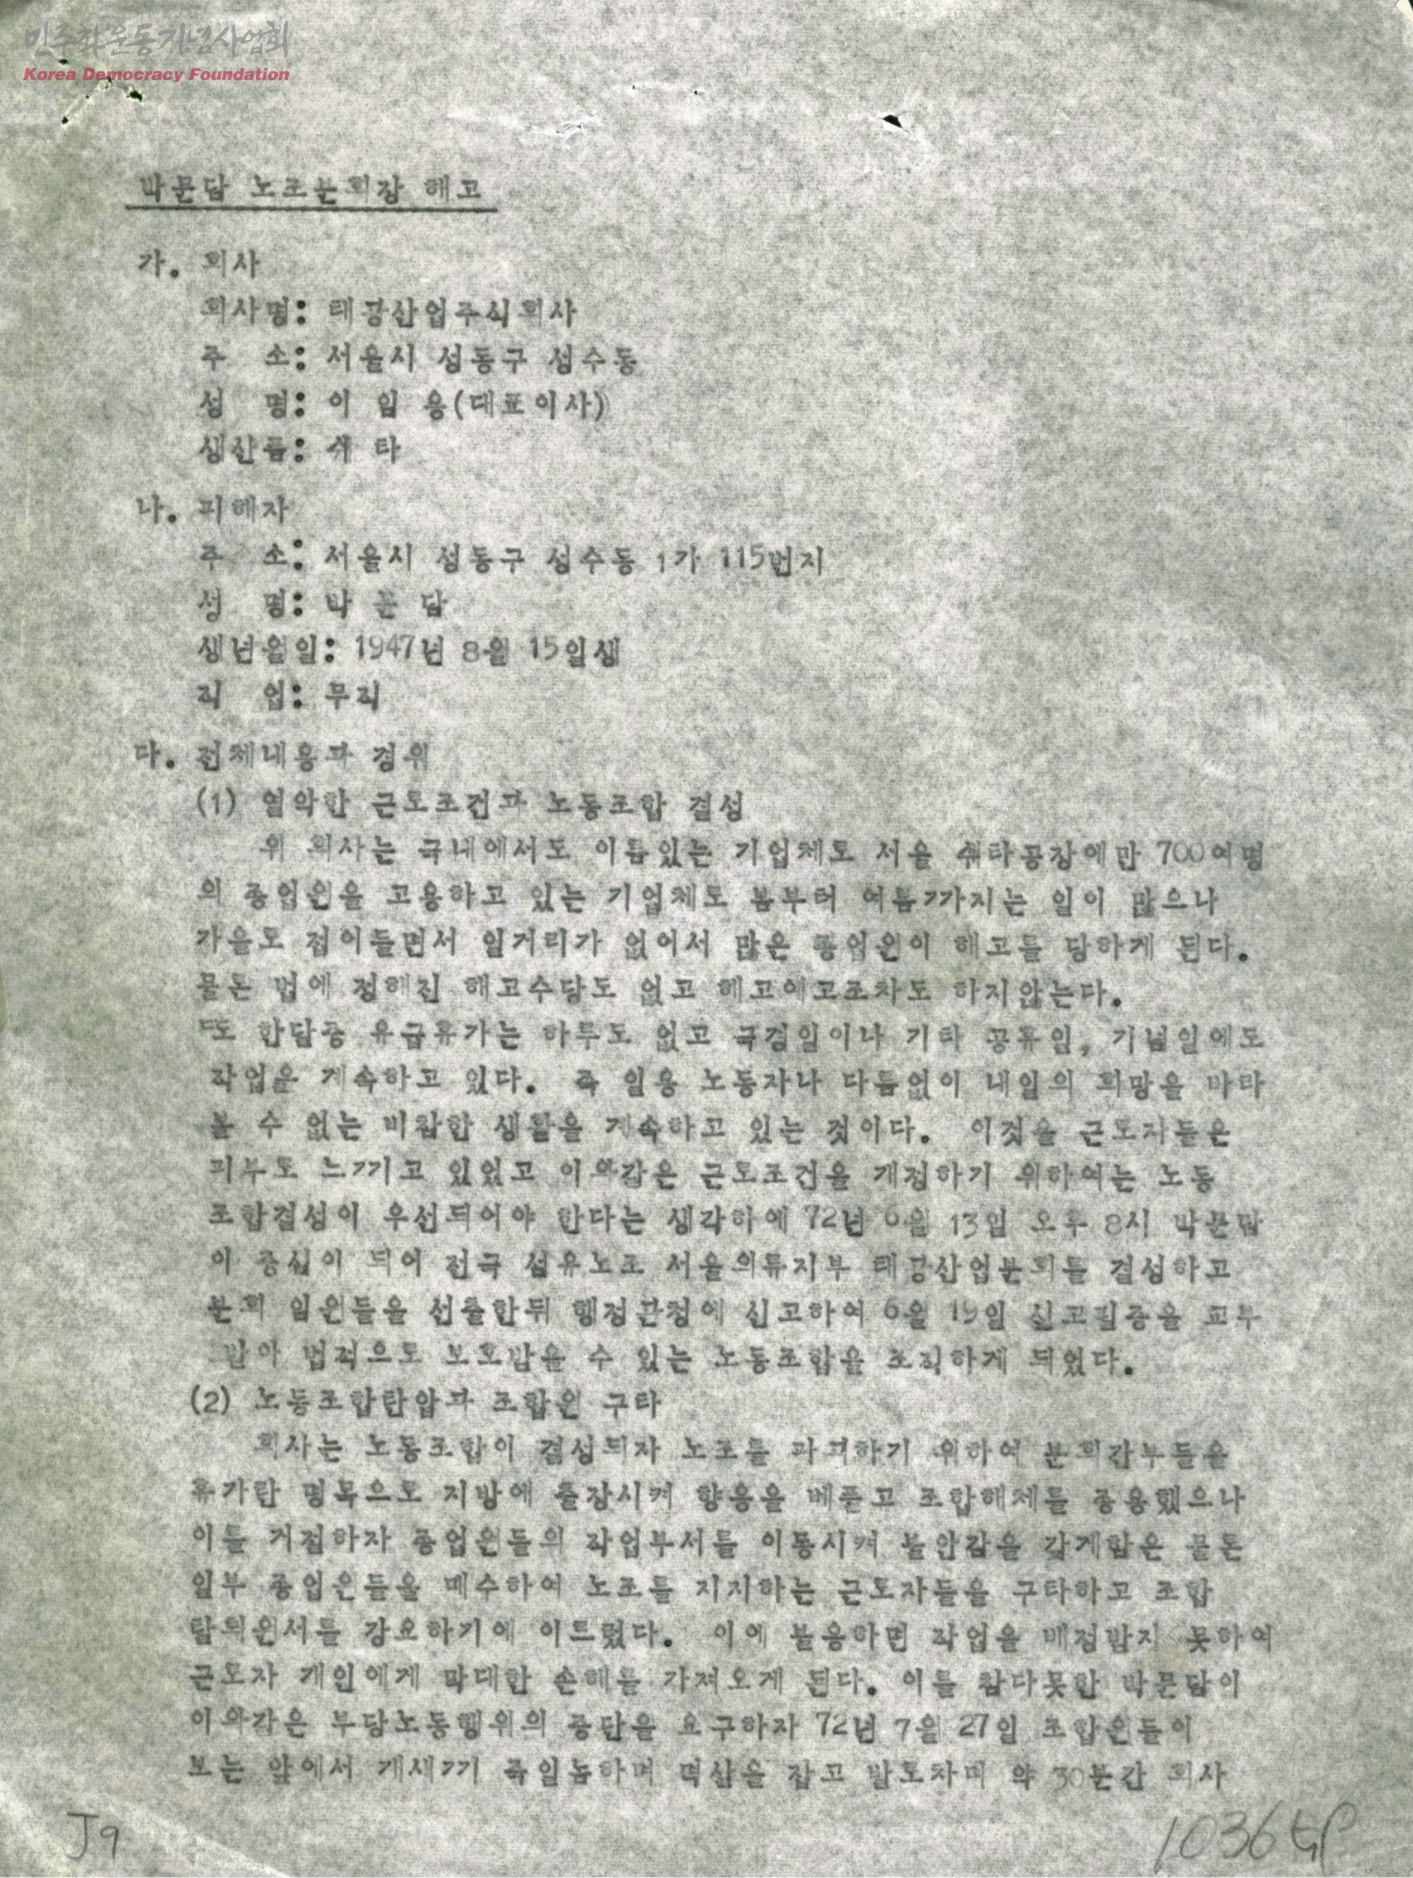 민주화운동기념사업회
Korea Democracy Foundation
박문담 노조분회장 해고
가. 회사
회사명: 태광산업주식회사
주 소: 서울시 성동구 성수동
성 명: 이 임 용(대표이사)
생산품: 쉐 타
나. 피해자
주 소: 서울시 성동구 성수동 1가 115번지
성 명: 박 문 담
생년월일: 1947년 8월 15일생
직 업: 무직
다. 전체내용과 경위
(1) 열악한 근로조건과 노동조합 결성
위 회사는 국내에서도 이름있는 기업체로 서울 쉐타공장에만 700여명
의 종업원을 고용하고 있는 기업체로 봄부터 여름까지는 일이 많으나
가을로 접어들면서 일거리가 없어서 많은 종업원이 해고를 당하게 된다.
물론 법에 정해진 해고수당도 없고 해고예고조차도 하지않는다.
또 한달중 유급휴가는 하루도 없고 국경일이나 기타 공휴일, 기념일에도
작업을 계속하고 있다. 즉 일용 노동자나 다름없이 내일의 희망을 바라
볼 수 없는 비참한 생활을 계속하고 있는 것이다. 이것을 근로자들은
피부로 느끼고 있었고 이와같은 근로조건을 개정하기 위하여는 노동
조합결성이 우선되어야 한다는 생각하에 72년 6월 13일 오후 8시 박문담
이 중심이 되어 전국 섬유노조 서울의류지부 태광산업분회를 결성하고
분회 임원들을 선출한뒤 행정관청에 신고하여 6월 19일 신고필증을 교부
받아 법적으로 보호받을 수 있는 노동조합을 조직하게 되었다.
(2) 노동조합탄압과 조합원 구타
회사는 노동조합이 결성되자 노조를 파괴하기 위하여 분회간부들을
휴가란 명목으로 지방에 출장시켜 향응을 베풀고 조합해체를 종용했으나
이를 거절하자 종업원들의 작업부서를 이동시켜 불안감을 갖게함은 물론
일부 종업원들을 매수하여 노조를 지지하는 근로자들을 구타하고 조합
탈퇴원서를 강요하기에 이르렀다. 이에 불응하면 작업을 배정받지 못하여
근로자 개인에게 막대한 손해를 가져오게 된다. 이를 참다못한 박문담이
이와같은 부당노동행위의 중단을 요구하자 72년 7월 27일 조합원들이
보는 앞에서 개새끼 죽일놈하며 멱살을 잡고 발로차며 약 30분간 회사
J9
1036